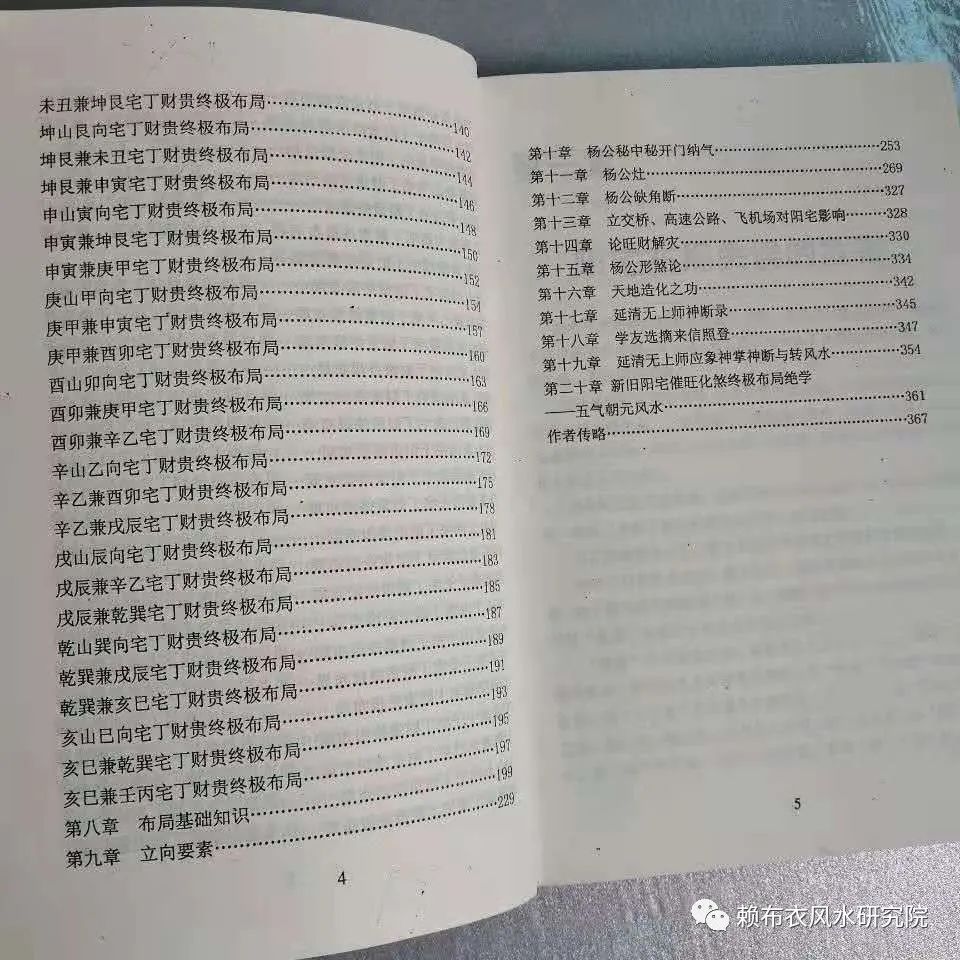 未丑兼坤艮宅丁财贵终极布局……………………140
坤山艮向宅丁财贵终极布局……………………142
坤艮兼未丑宅丁财贵终极布局……………………144
坤艮兼申寅宅丁财贵终极布局……………………146
申山寅向宅丁财贵终极布局……………………148
申寅兼坤艮宅丁财贵终极布局……………………150
申寅兼庚甲宅丁财贵终极布局……………………152
庚山甲向宅丁财贵终极布局……………………154
庚甲兼申寅宅丁财贵终极布局……………………157
庚甲兼酉卯宅丁财贵终极布局……………………160
酉山卯向宅丁财贵终极布局……………………163
酉卯兼庚甲宅丁财贵终极布局……………………166
酉卯兼辛乙宅丁财贵终极布局……………………169
辛山乙向宅丁财贵终极布局……………………172
辛乙兼酉卯宅丁财贵终极布局……………………175
辛乙兼戌辰宅丁财贵终极布局……………………178
戌山辰向宅丁财贵终极布局……………………181
戌辰兼辛乙宅丁财贵终极布局……………………183
戌辰兼乾巽宅丁财贵终极布局……………………185
乾山巽向宅丁财贵终极布局……………………187
乾巽兼戌辰宅丁财贵终极布局……………………189
乾巽兼亥巳宅丁财贵终极布局……………………191
亥山巳向宅丁财贵终极布局……………………193
亥巳兼乾巽宅丁财贵终极布局……………………195
亥巳兼壬丙宅丁财贵终极布局……………………197
第八章 布局基础知识……………………199
第九章 立向要素……………………229
4
第十章 杨公秘中秘开门纳气……………………253
第十一章 杨公灶……………………269
第十二章 杨公缺角断……………………327
第十三章 立交桥、高速公路、飞机场对阳宅影响………328
第十四章 论旺财解灾……………………330
第十五章 杨公形煞论……………………334
第十六章 天地造化之功……………………342
第十七章 延清无上师神断录……………………345
第十八章 学友选摘来信照登……………………347
第十九章 延清无上师应象神掌神断与转风水…………354
第二十章 新旧阳宅催旺化煞终极布局绝学
——五气朝元风水……………………361
作者传略……………………367
5
赖布衣风水研究院